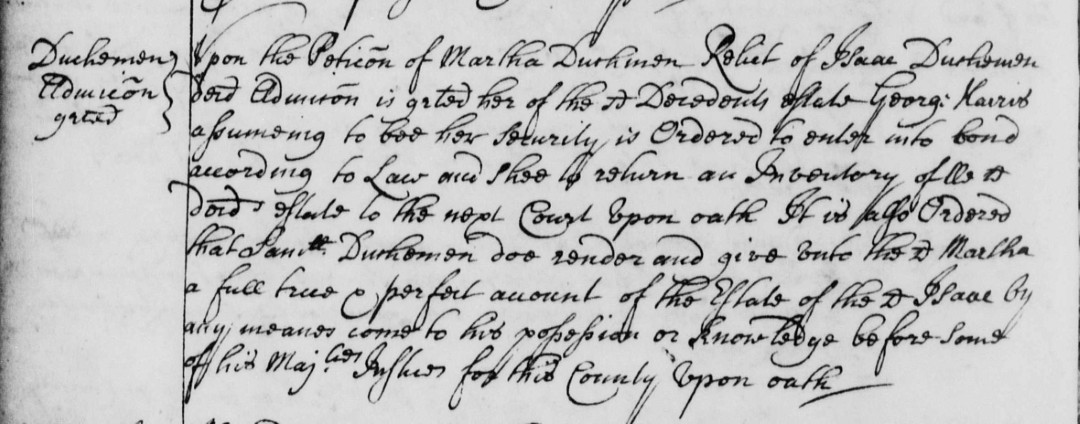 Duchemen
Admicõn
grted
Upon the Peticõn of Martha Duchmen Relict of Isaac Duchemen
decd Admicõn is grted her of the sd Decedents estate Georg: Harris
assumeing to bee her security is Ordered to enter into bond
according to Law and shee to return an Inventory of the sd
decds estate to the next Court Upon oath It is also Ordered
that Samll Duchemen doe render and give unto the sd Martha
a full true & perfect account of the Estate of the sd Isaac by
any meanes come to his possession or knowledge before some
of his Majties Justices for this County Upon oath